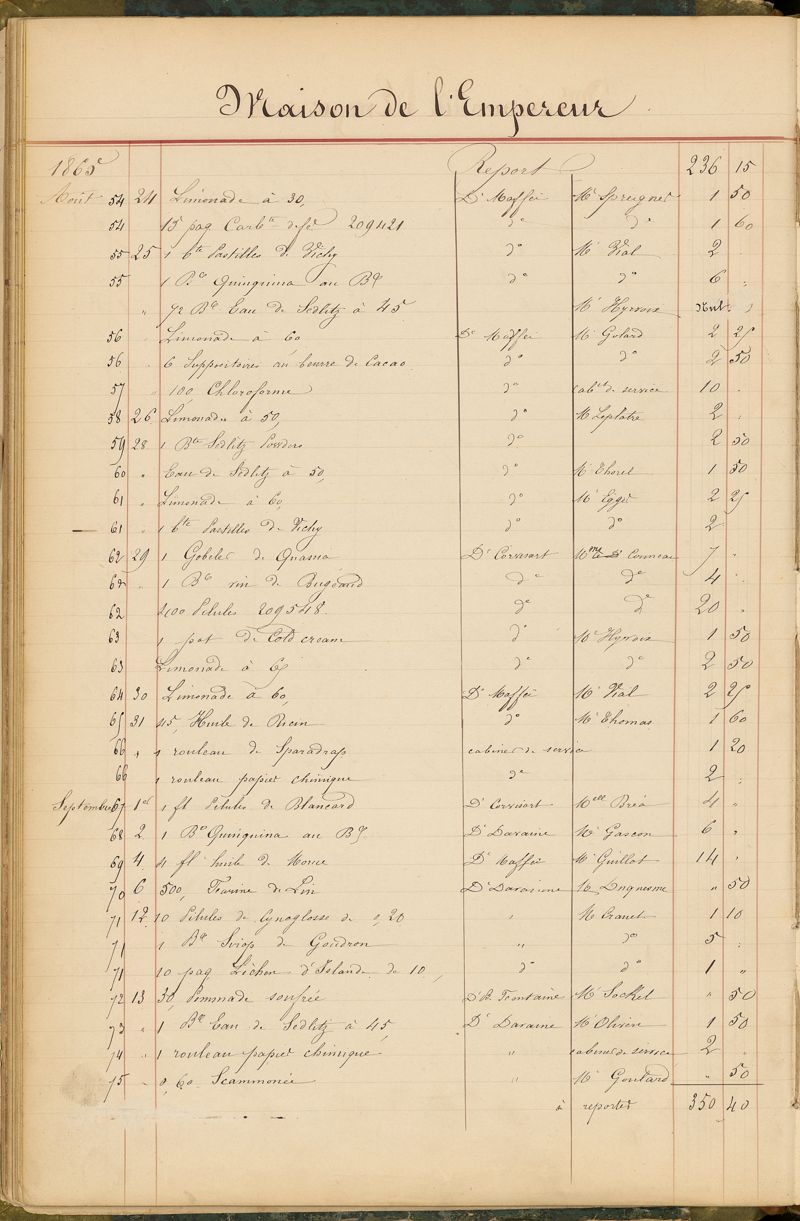 Maison de l'Empereur
1865 Report 236 15
Août 54 24 Limonade à 30, Dr Maffei Mr Spreigner 1 50
54 15 paq Carbte de fer 209421 do do 1 60
55 25 1 bte Pastilles de Vichy do Mr Vial 2
55 1 Blle Quinquina au Bx do do 6 "
" 1/2 Blle Eau de Sedlitz à 45 Mr Hyrvoix Nul "
56 " Limonade à 60 Dr Maffei Mr Golard 2 25
56 " 6 Suppositoires au beurre de Cacao do do 2 50
57 " 100, Chloroforme do cabet de service 10 "
58 26 Limonade à 50, do Mr Leplatre 2 "
59 28 1 Bte Sedlitz Powders do 2 50
60 " Eau de Sedlitz à 50, do Mr Thorel 1 50
61 " Limonade à 60, do Mr Egger 2 25
61 " 1 bte Pastilles de Vichy do do 2
62 29 1 Gobelet de Quassia Dr Corvisart Mme Conneau 7 "
62 " 1 Blle vin de Bugeaud do do 4 "
62 200 Pilules 209548. do do 20 "
63 1 pot de Cold cream do Mr Hyrvoix 1 50
63 Limonade à 65 do do 2 50
64 30 Limonade à 60, Dr Maffei Mr Vial 2 25
65 31 45, Huile de Ricin do Mr Thomas 1 60
66 " 1 rouleau de Sparadrap cabinet de service 1 20
66 1 rouleau papier chimique do 2 "
Septembre 67 1er 1 fl Pilules de Blancard Dr Corvisart Melle Bréa 4 "
68 2 1 Blle Quinquina au Bx Dr Davaine Mr Gascon 6 "
69 4 4 fl huile de Morue Dr Maffei Mr Guillot 14 "
70 6 500, Farine de Lin Dr Davaine Mr Duquesme " 50
71 12 10 Pilules de Cynoglosse de 0,20 " Mr Cranet 1 10
71 1 Blle Sirop de Goudron " do 5 "
71 10 paq Lichen d'Islande de 10, do do 1 "
72 13 30, Pommade soufrée Dr Fontaine Mr Socket " 50
73 " 1 Blle Eau de Sedlitz à 45, Dr Davaine Mr Olivier 1 50
74 " 1 rouleau papier chimique " cabinet de service 2 "
75 " 0,60 Scammonée " Mr Goutard " 50
à reporter 350 40